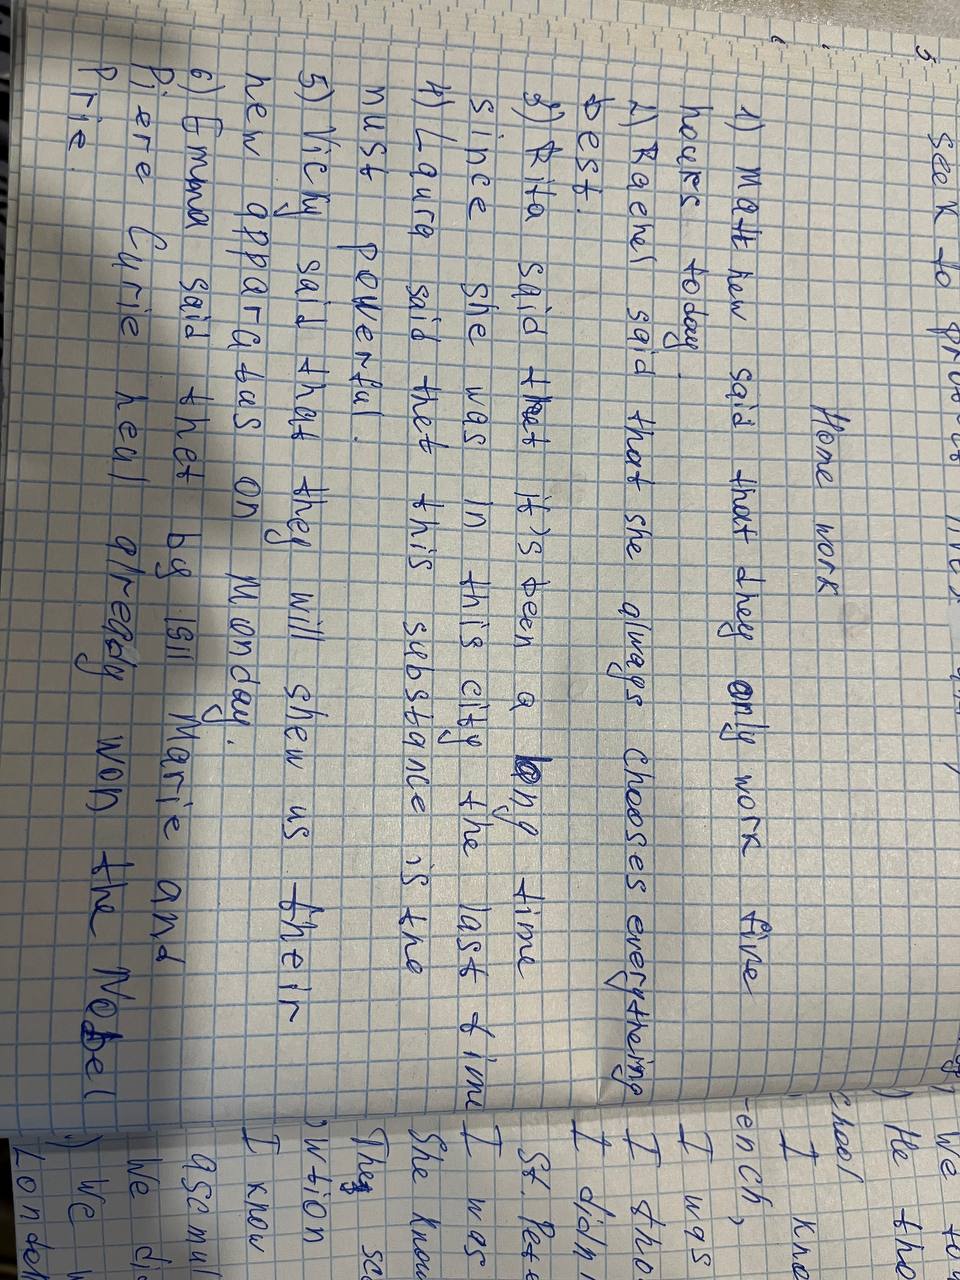 seek to
Home work
1) Matthew said that they only work five
hours today.
2) Rachel said that she always chooses everytheing
best.
3) Rita said that it's been a long time
since she was in this city the last time
4) Laura said thet this substance is the
must powerful.
5) Vicky said that they will shew us their
new apparatus on Monday.
6) Emma said thet by 1911 Marie and
Piere Curie heul already won the Nobel
Prie.
We
He tho
chool
I kno
ench,
I was
I tho
I didn
St. Pete
I was
She know
They sa
I know
We di
We
London